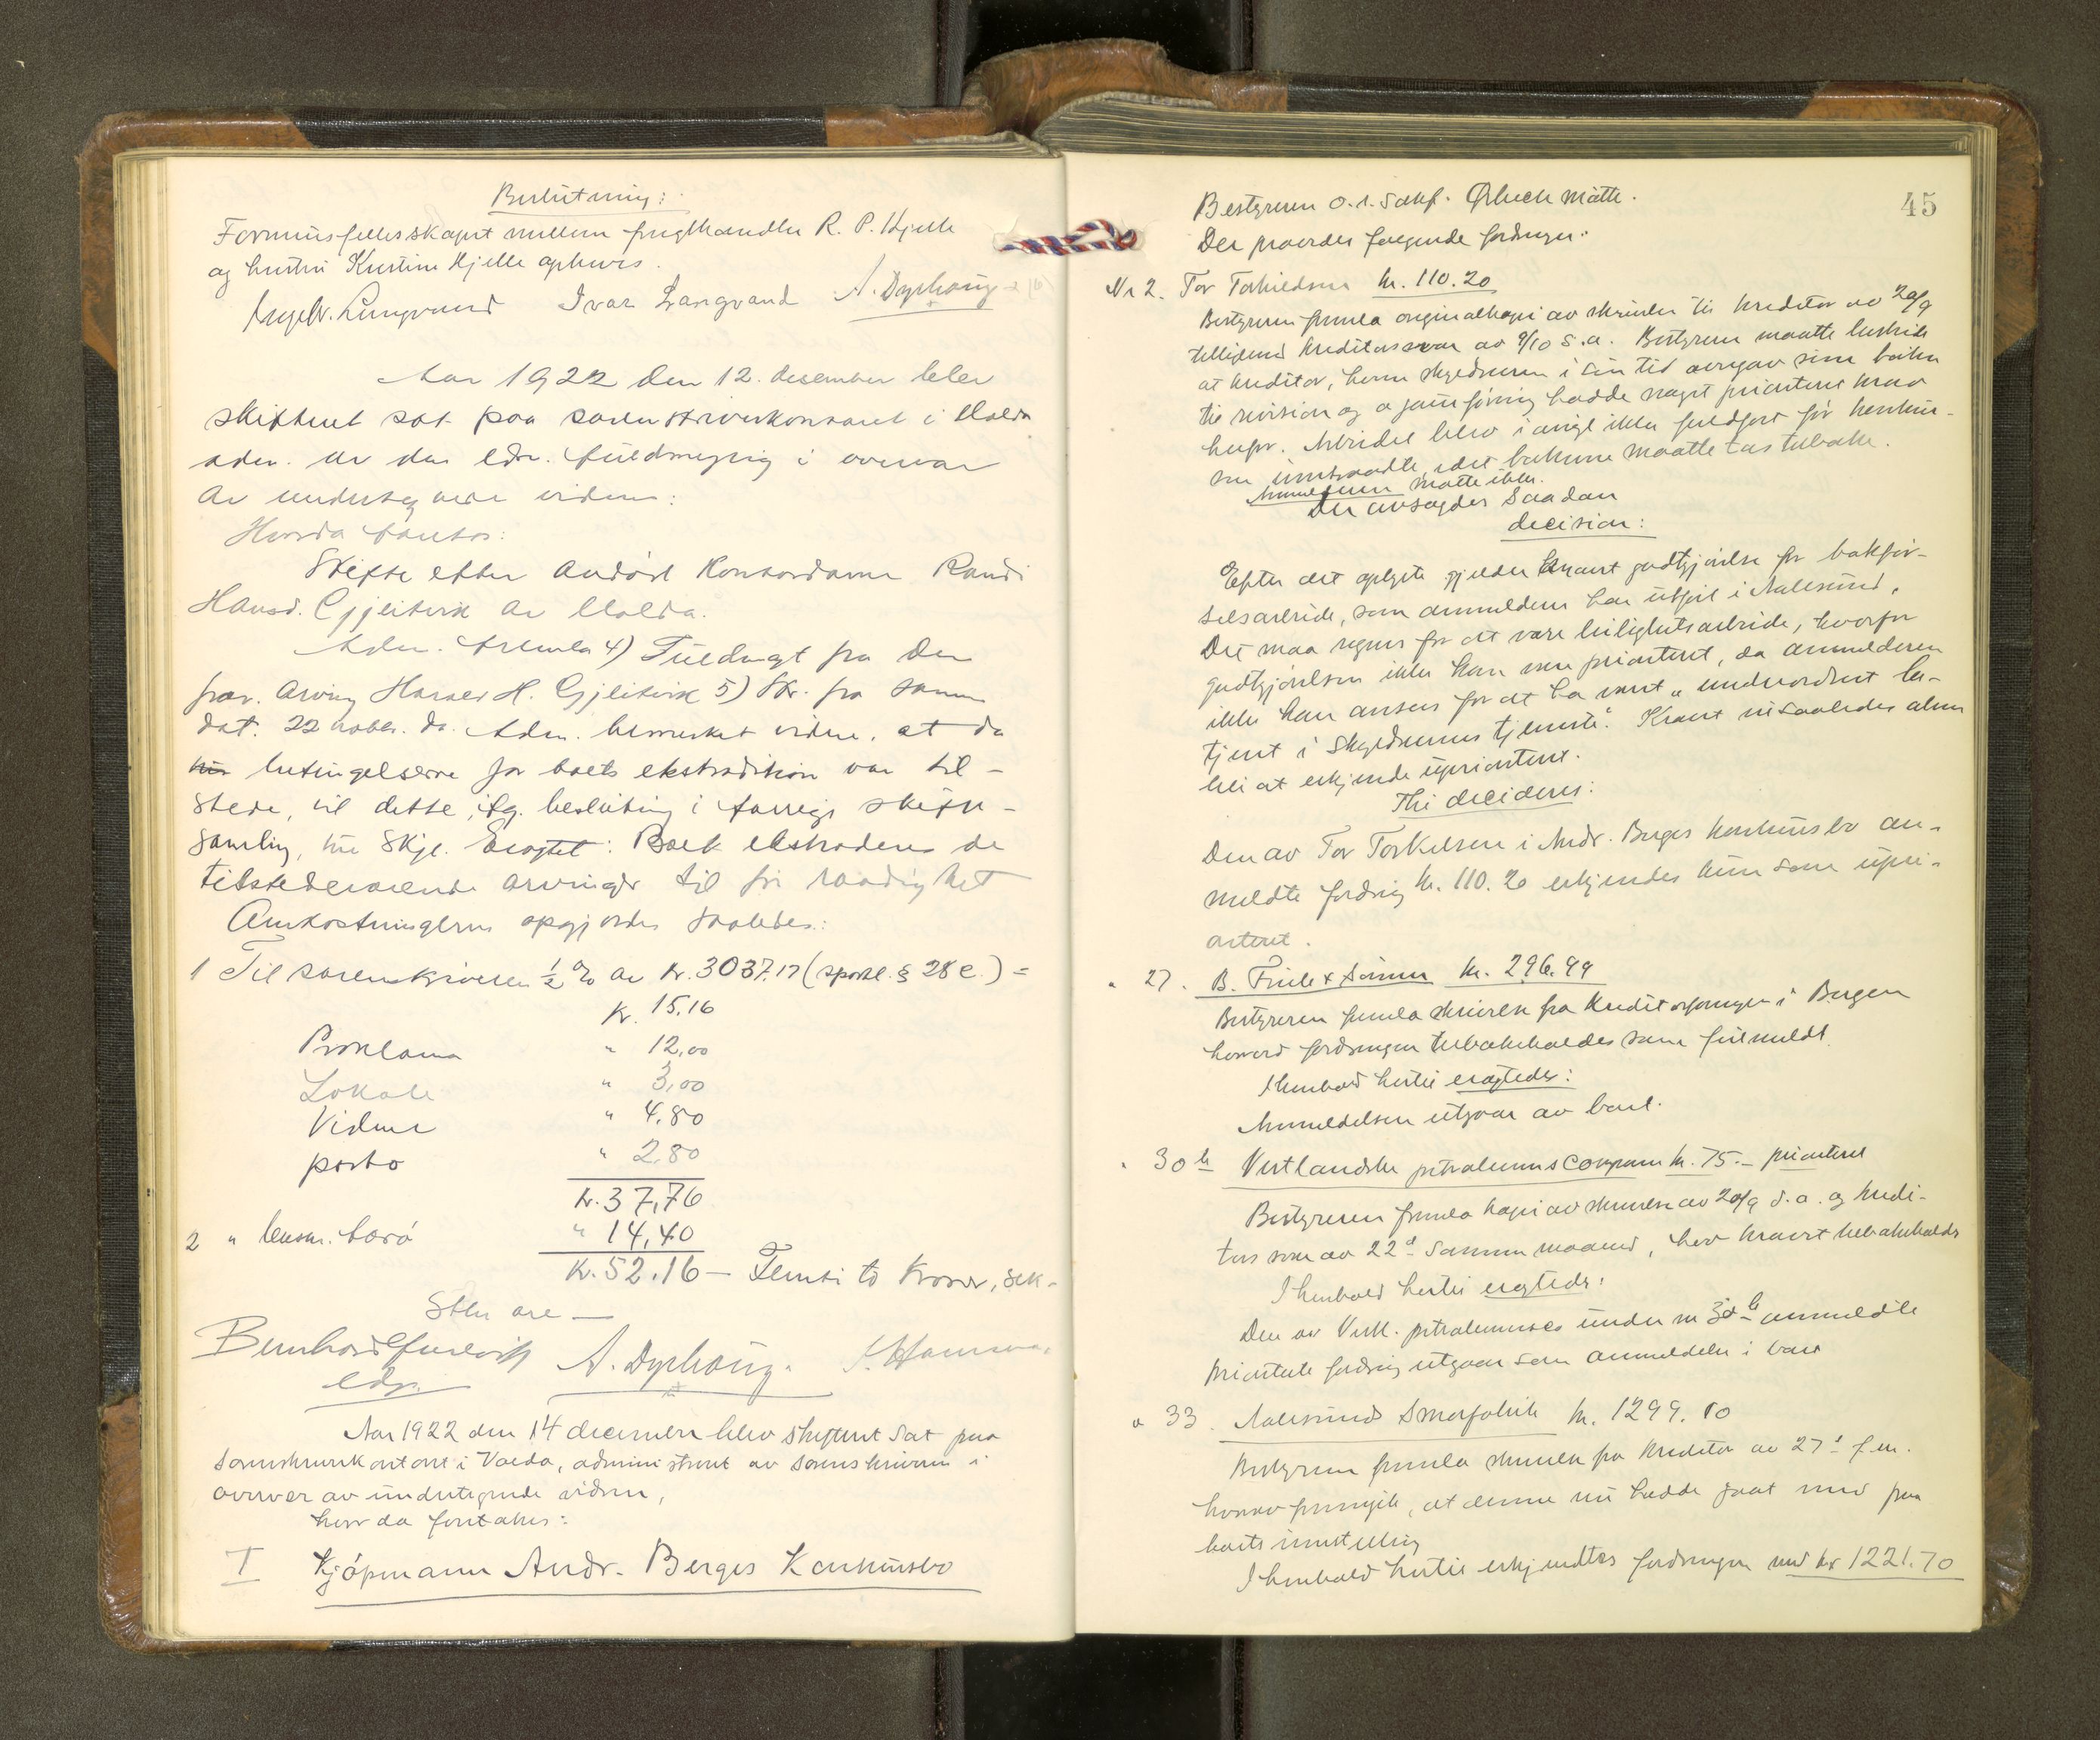 Beslutning:
Formuesfellesskapet mellem frugthandler R. P. Hjelle
og hustru Kristine Hjelle ophæves.
Ivar Langvand A. Dyrhaug
Aar 1922 den 12. desember blev
skifteret sat paa sorenskriverkontoret i Volda
adm. av den edsv. fuldmegtig i overvær
av undertegnede vidner:
Hvorda foretos:
Skifte efter avdöde Randi
Hansd. Gjeitvik av Volda.
Adm. fremla 4) Fuldmagt fra den
frav. arving H. Gjeitvik 5) Skr. fra samme
dat. 22 novbr. d.a. Adm. bemerket videre, at da
betingelserne for boets ekstradition var til-
stede, vil dette, ifg. beslutning i forrige skifte-
samling, nu skje. Eragtet: Boet ekstraderes de
tilstedeværende arvinger til fri raadighet
Omkostningerne opgjordes saaledes:
1 Til sorenskriveren ½ % av kr. 3037.17 (sportl. § 28 c.) =
kr. 15.16
Proklama " 12,00
Lokale " 3,00
Vidner " 4,80
porto " 2,80
kr. 37,76
2 " lensm. " 14,40
kr. 52.16 – Femti to kroner, sek-
sten øre —
A. Dyrhaug.
edsv.
Aar 1922 den 14 december blev skifteret sat paa
sorenskriverkontoret i Volda, administrert av sorenskriveren i
overvær av undertegnede vidner,
hvor da foretokes:
I Kjöpmann Andr. Berges Konkursbo
45
Bestyreren o.r.sakf. mötte.
Der prøvedes følgende fordringer:
Nr 2. Tor Torkildsen kr. 110.20
Bestyreren fremla originalkopi av skrivelse til kreditor av 20/9
tillikemed kreditors svar av 9/10 s.a. Bestyreren maatte bestride
at kreditor, hvem skyldneren i sin tid overgav sine bøker
til revision og ajourføring hadde noget prioritert krav
herfor. Arbeidet blev iøvrig ikke fuldført før konkur-
sen inntraadte, idet bøkerne maatte tas tilbake.
Anmelderen møtte ikke.
Der avsagdes saadan
decision:
Efter det oplyste gjelder kravet godtgjørelse for bokfør-
selsarbeide, som anmelderen har utført i Aalesund.
Det maa regnes for at være leilighetsarbeide, hvorfor
godtgjørelsen ikke kan være prioritert, da anmelderen
ikke kan ansees for at ha været "underordnet be-
tjent i skyldnerens tjeneste". Kravet vil saaledes alene
bli at erkjende uprioritert.
Thi decideres:
Den av Tor Torkelsen i Andr. Berges konkursbo an-
meldte fordring kr. 110.20 erkjendes kun som upri-
oritert.
" 27. B. Friele & Sønner kr. 296.99
Bestyreren fremla skrivelse fra Kreditorforeningen i Bergen
hvorved fordringen tilbakekaldes som feilmeldt.
I henhold hertil eragtedes:
Anmeldelsen utgaar av boet.
" 30 b Vestlandske petroleumscompani kr. 75.– prioritert
Bestyreren fremla kopi av skrivelse av 20/9 s.a. og kredi-
tors svar av 22d samme maaned, hvor kravet tilbakekaldes
I henhold hertil eragtedes:
Den av Vestl. petroleumsco under nr 30 b anmeldte
prioriterte fordring utgaar som anmeldelse i boet
" 33. Aalesunds Smørfabrik kr. 1299.10
Bestyreren fremla skrivelse fra kreditor av 27d f.m.
hvorav fremgik, at denne nu hadde gaat med paa
boets innstilling
I henhold hertil erkjendtes fordringen med kr 1221.70